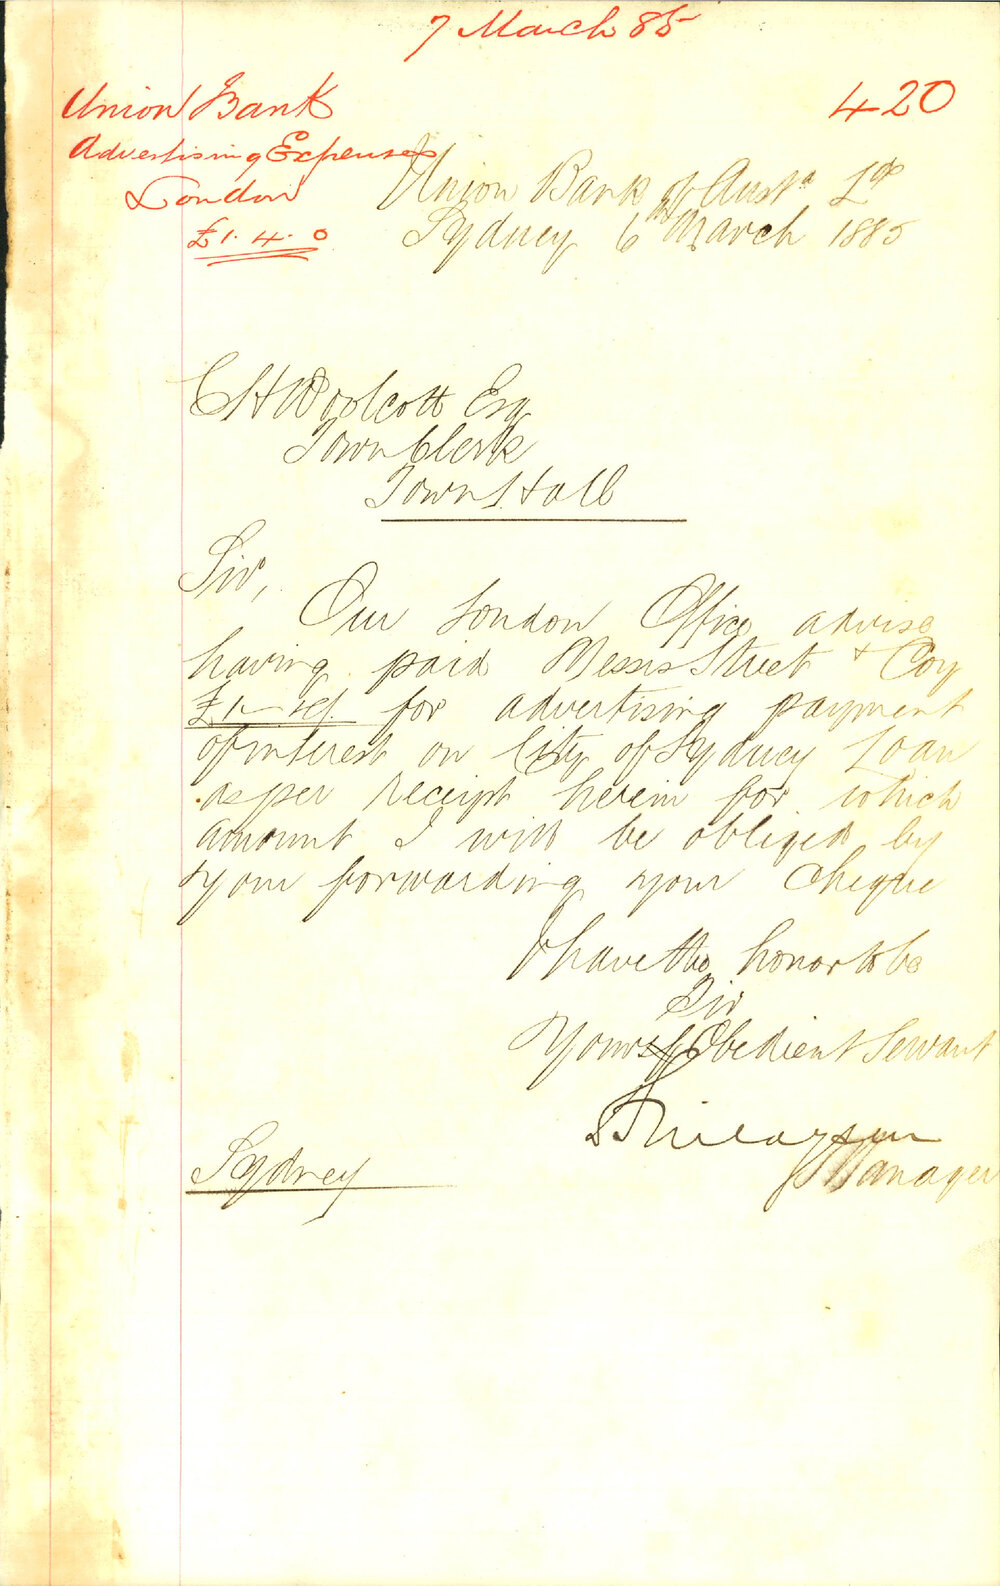 7 March 85
420
Union Bank
Advertising Expenses
London
£1.4.0
Union Bank of Austa Ld
Sydney 6th March 1885
C H Woolcott Esq
Town Clerk
Town Hall
Sir,
Our London Office advise
having paid Messrs Street & Coy
£1- for advertising payment
of interest on City of Sydney Loan
as per receipt herein for which
amount I will be obliged by
your forwarding your cheque
I have the honor to be
Sir
Your Obedient Servant
Manager
Sydney